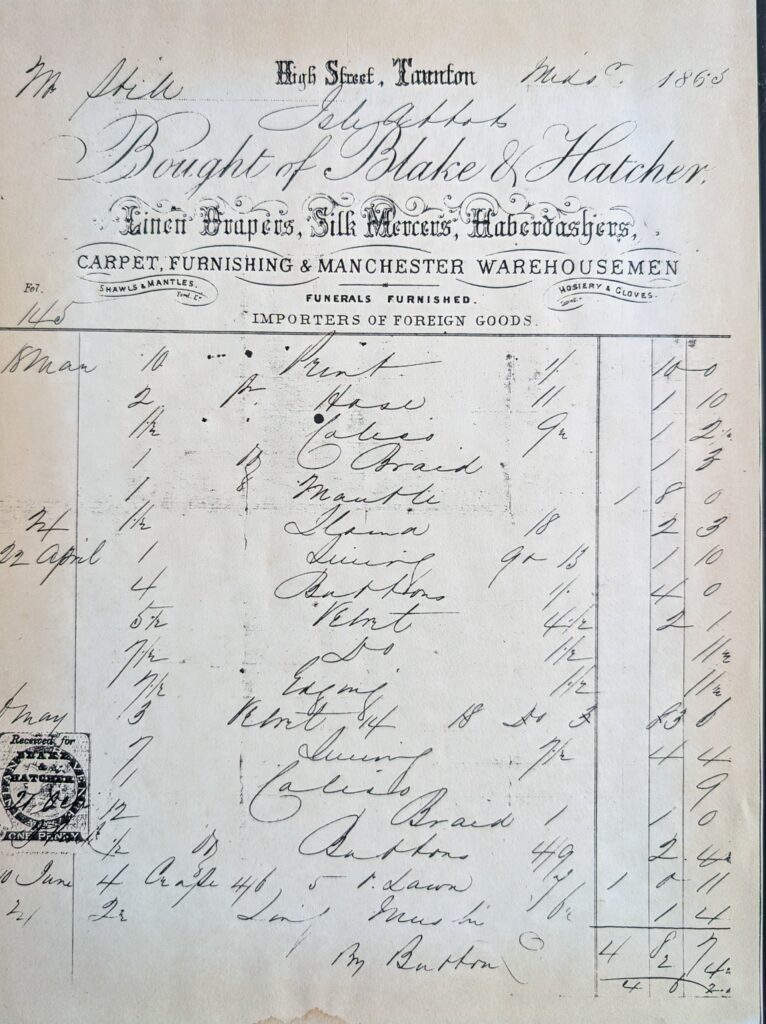 High Street, Taunton
Mr Still Mids.r 1865
Isle Abbots
Bought of Blake & Hatcher.
Linen Drapers, Silk Mercers, Haberdashers,
CARPET, FURNISHING & MANCHESTER WAREHOUSEMEN
SHAWLS & MANTLES. HOSIERY & GLOVES.
Fol. FUNERALS FURNISHED.
145 IMPORTERS OF FOREIGN GOODS.
18 Mar 10 Print 1/. 10 0
2 pr Hose 11 1 10
1½ Calico 9½ 1 2½
1 Braid 1 3
1 Mantle 1 8 0
24 1½ Llama 18 2 3
22 April 1 Lining 1 10
4 Buttons 1/. 4 0
5½ Velvet 4½ 2 1
7½ Do 1½ 11½
7½ Edging 1½ 11½
May 3 Velvet 14 18 Do 3 3 6
7 Lining 7½ 4 4
1 Calico 9
12 Braid 1 1 0
½ Buttons 4/9 2 4½
10 June 4 Crape 4/6 5 Lawn 1 0 11
21 2½ Muslin 1 4
4 8 7
By Button 2 4½
4 6 2½
Received for
BLAKE
&
HATCHER
ONE PENNY